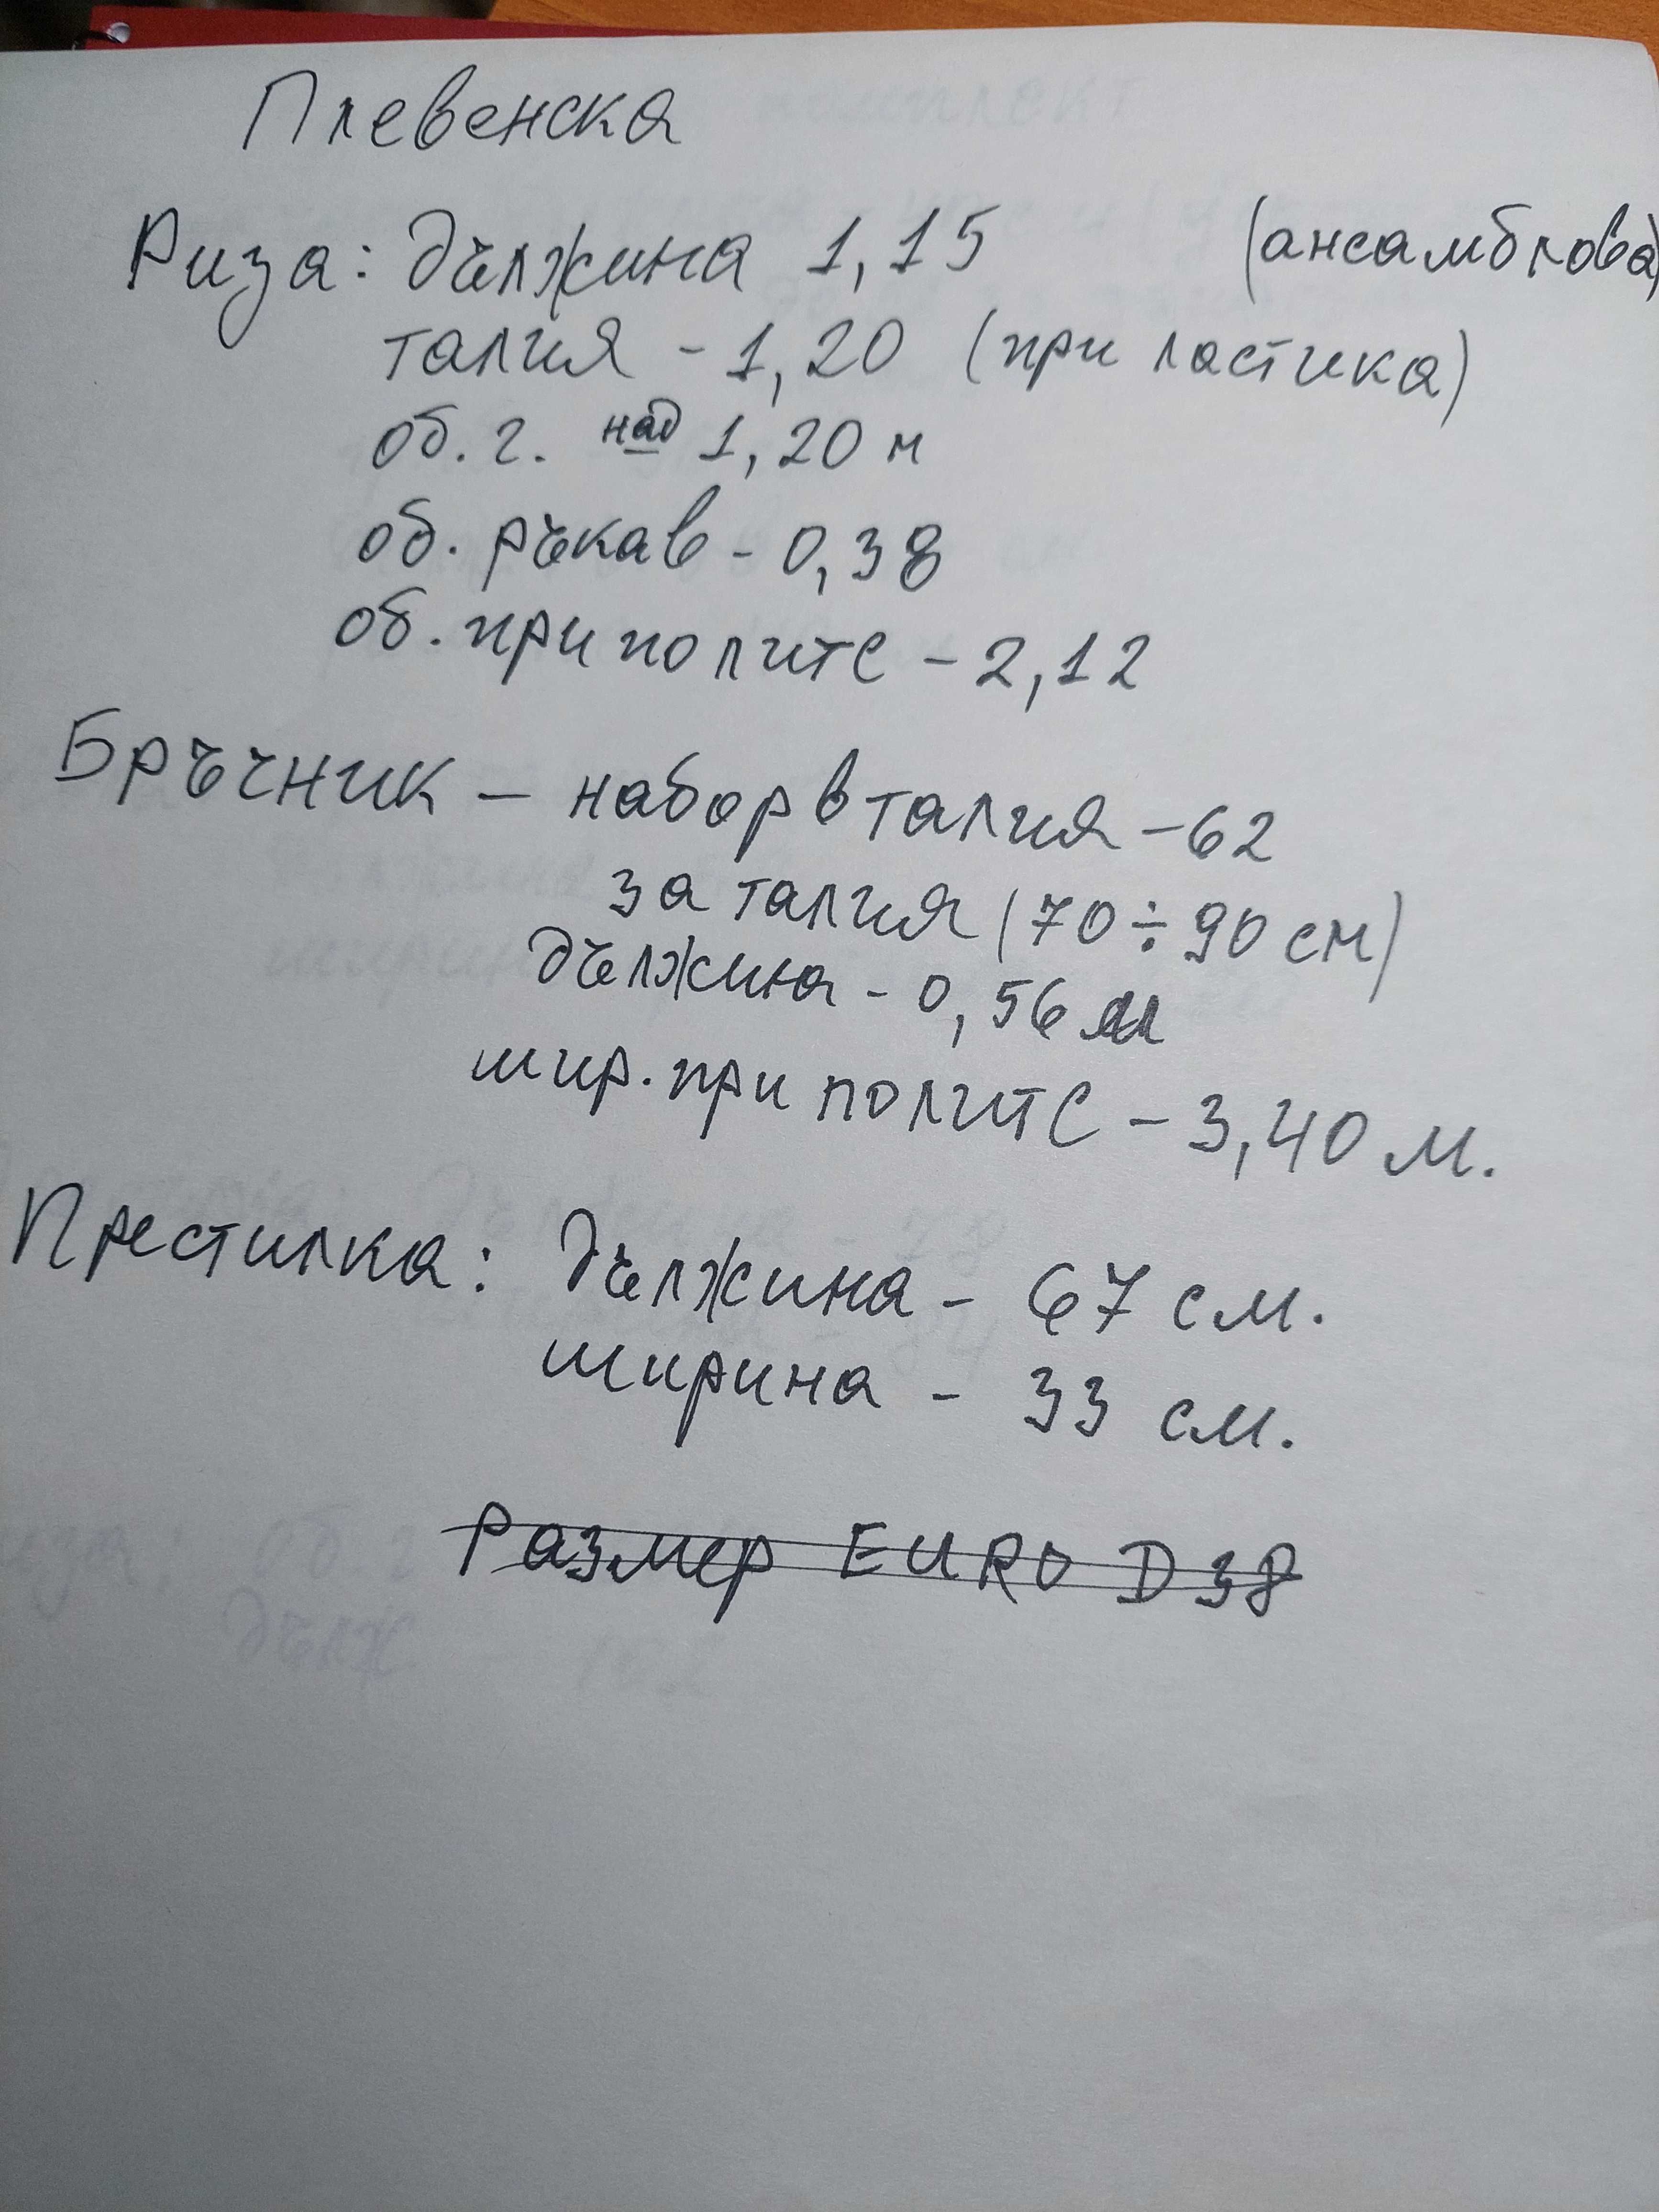 Плевенска
Риза: дължина 1,15 (ансамблова)
талия - 1,20 (при ластика)
об. г. над 1,20 м
об. ръкав - 0,38
об. при полите - 2,12
Бръчник - набор в талия - 62
за талия (70÷90 см)
дължина - 0,56 м
шир. при полите - 3,40 м.
Престилка: дължина - 67 см.
ширина - 33 см.
Размер EURO D 38